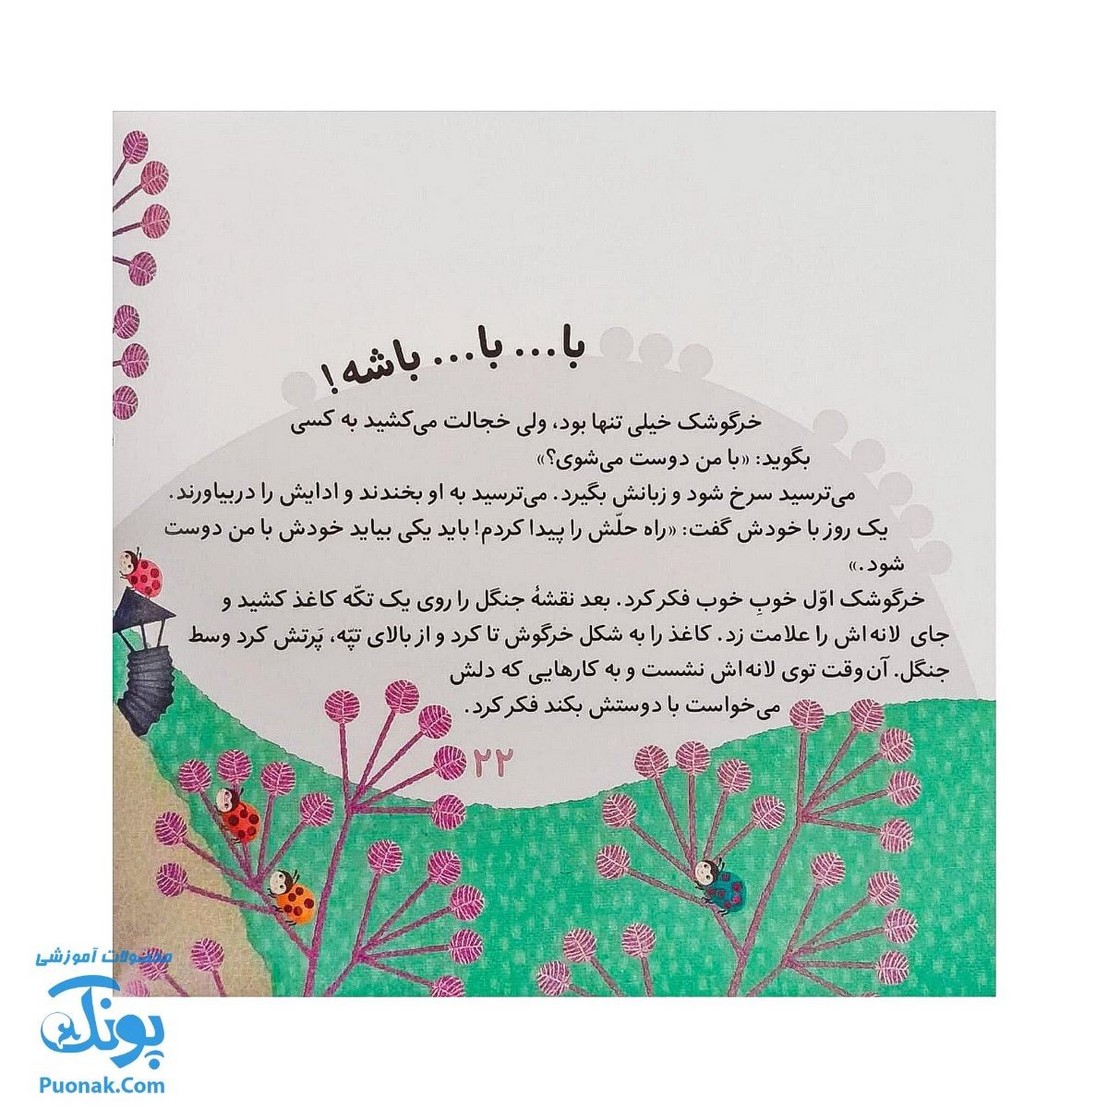 با... با... باشه!
خرگوشک خیلی تنها بود، ولی خجالت می‌کشید به کسی
بگوید: «با من دوست می‌شوی؟»
می‌ترسید سرخ شود و زبانش بگیرد. می‌ترسید به او بخندند و ادایش را دربیاورند.
یک روز با خودش گفت: «راه حلّش را پیدا کردم! باید یکی بیاید خودش با من دوست
شود.»
خرگوشک اوّل خوبِ خوب فکر کرد. بعد نقشهٔ جنگل را روی یک تکّه کاغذ کشید و
جای لانه‌اش را علامت زد. کاغذ را به شکل خرگوش تا کرد و از بالای تپّه، پَرتش کرد وسط
جنگل. آن‌وقت توی لانه‌اش نشست و به کارهایی که دلش
می‌خواست با دوستش بکند فکر کرد.
۲۲
محصولات آموزشی
پونک
Puonak.Com